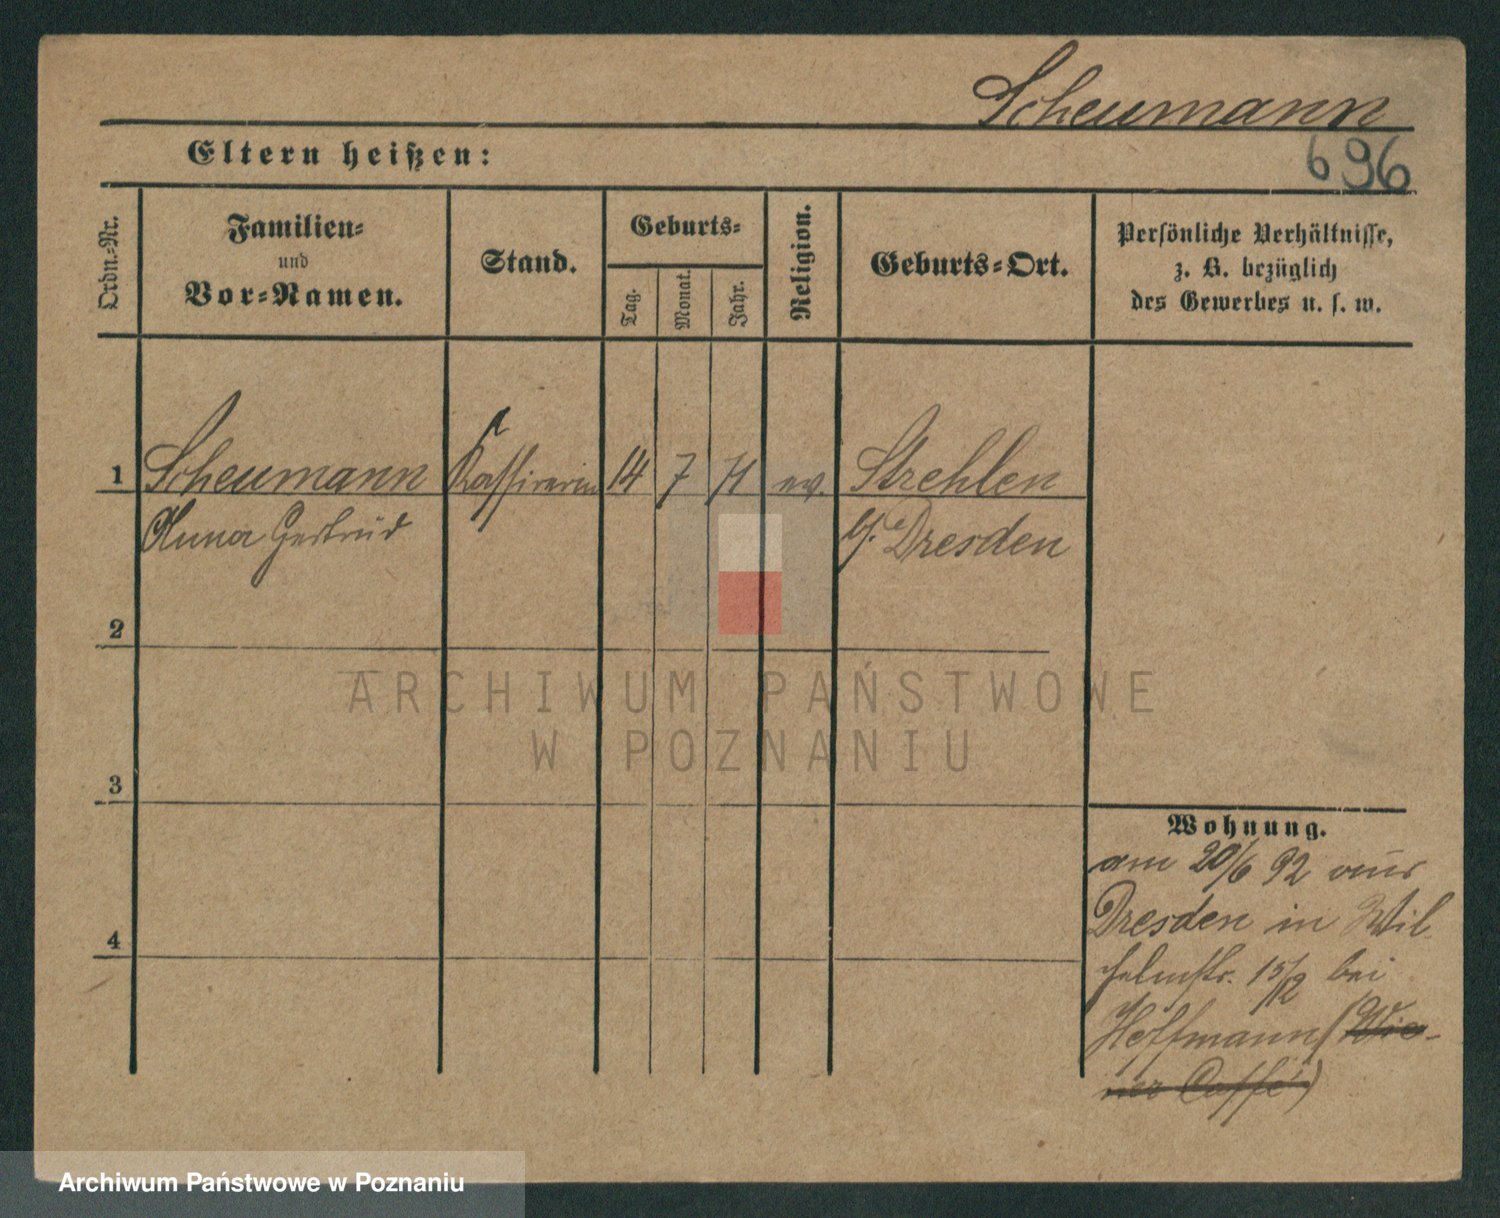 Scheumann
Eltern heißen:
696
Ordn.-Nr.
Familien-
und
Vor-Namen.
Stand.
Geburts-
Tag.
Monat.
Jahr.
Religion.
Geburts-Ort.
Persönliche Verhältnisse,
z. B. bezüglich
des Gewerbes u. s. w.
1 Scheumann Kassirerin 14 7 71 ev. Strehlen
Anna Gertrud b/. Dresden
2
3
4
Wohnung.
am 20/6 92 aus
Dresden in Wil
helmstr. 15/12 bei
Hoffmann (Wie-
ner Caffé)
ARCHIWUM PAŃSTWOWE
W POZNANIU
Archiwum Państwowe w Poznaniu